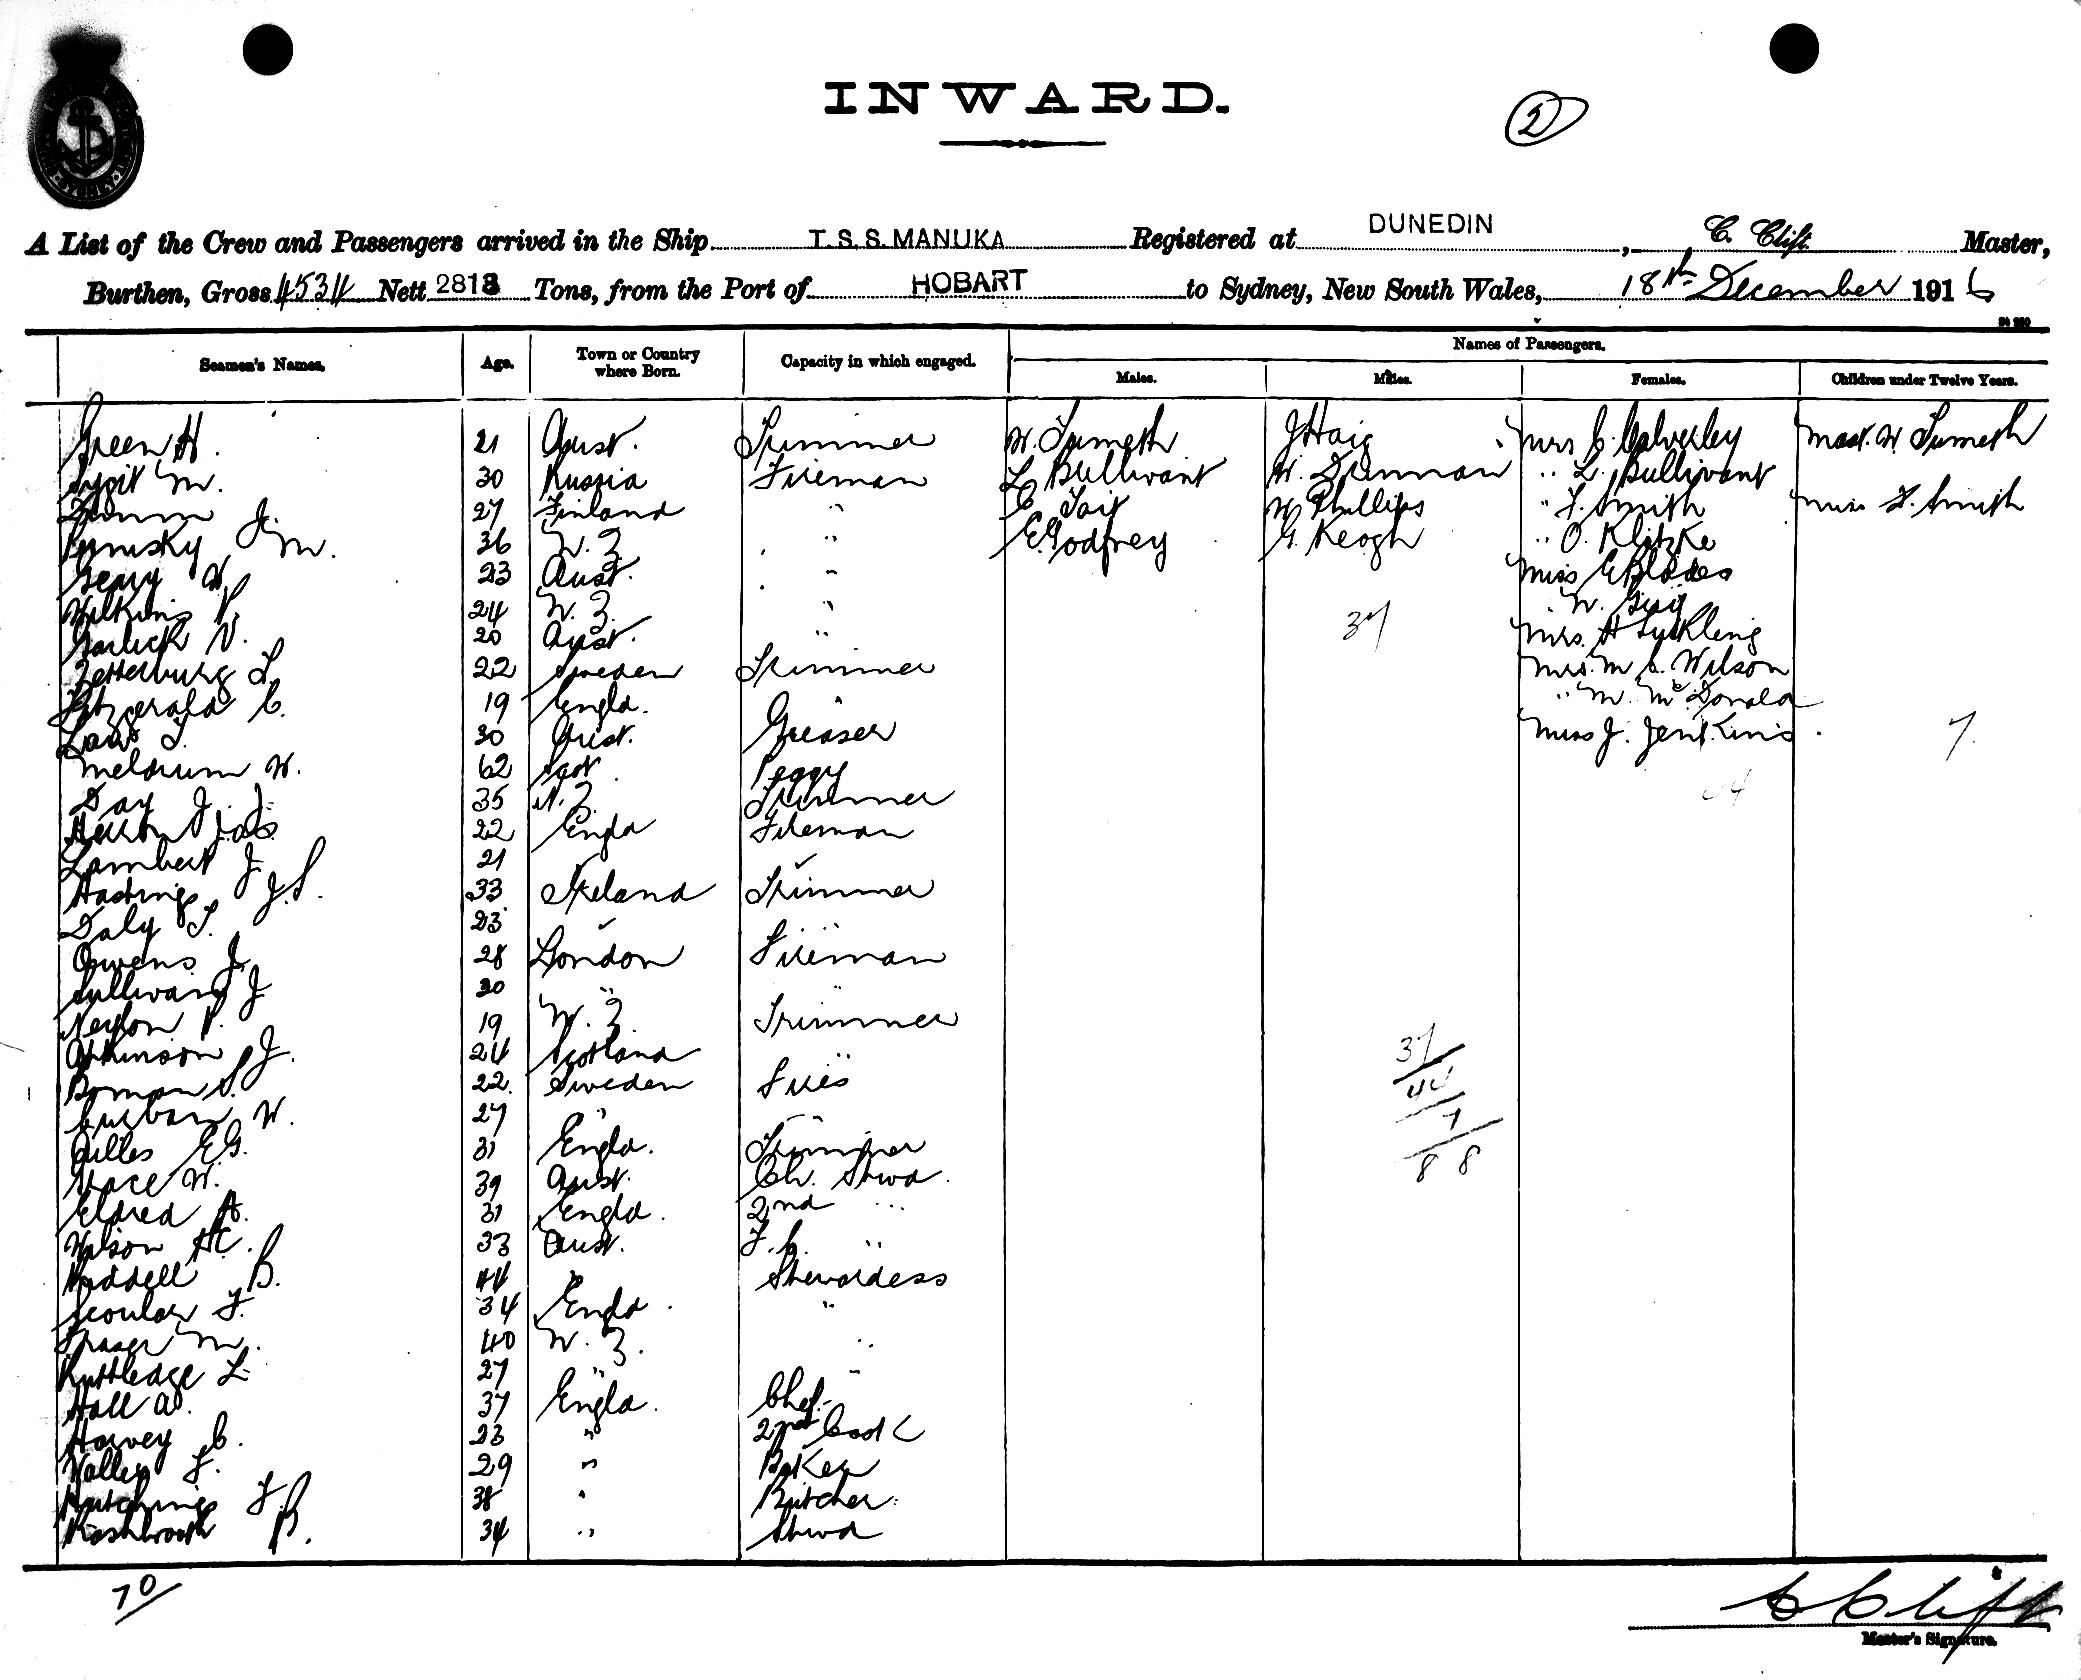 INWARD.
2
A List of the Crew and Passengers arrived in the Ship T.S.S. MANUKA Registered at DUNEDIN, C. Clift Master,
Burthen, Gross 4534 Nett 2818 Tons, from the Port of HOBART to Sydney, New South Wales, 18th December 1916
Seamen's Names. Age. Town or Country where Born. Capacity in which engaged. Names of Passengers.
Males. Males. Females. Children under Twelve Years.
Green H. 21 Aust. Trimmer W. Tumeth J Haig Mrs C. Calverley Mast. W. Tumeth
M. 30 Russia Fireman L Bullivant W. Denman " L. Bullivant
J. 27 Finland " C Tait W Phillips " F. Smith Miss F. Smith
M. 36 N.Z " E. Godfrey G. Keogh " O. Klitzke
Geary W. 23 Aust. " Miss E Blades
Wilkins P. 24 N.Z. " " N.
Garlick V. 20 Aust. " 37 Mrs. H Suckling
Zetterburg L 22 Sweden Trimmer Mrs. M C. Wilson
Fitzgerald C. 19 Engld. " M. McDonald
Laws T. 30 Aust. Greaser Miss J. Jenkins. 7
Meldrum W. 62 Scot. Peggy
Day J. J. 35 N.Z. Trimmer 44
Jas 22 Engd Fireman
Lambert J. 21 "
Hastings J.S. 33 Ireland Trimmer
Daly T. 23 "
Owens J. 28 London Fireman
Sullivan J 30 " "
Neylon P. 19 N.Z. Trimmer
Atkinson J. 24 Scotland " 37
Boman S. 22. Sweden Fires 44
W. 27 " " 7
Gilles E G. 31 Engld. Trimmer 88
Vace W. 39 Aust. Ch. Stwd.
Eldred A. 31 Engld. 2nd "
Wilson H C. 33 Aust. F. C. "
Waddell B. 44 " Stewardess
Scoular F. 34 Engd. "
Fraser M. 40 N.Z. "
Ruttledge L. 27 " "
Hall A. 37 Engld. Chef.
Harvey C. 23 " 2nd Cook
F. 29 " Baker
Hutchings F. 38 " Butcher.
Rashbrook B. 34 " Stwd
70
C Clift
Master's Signature.